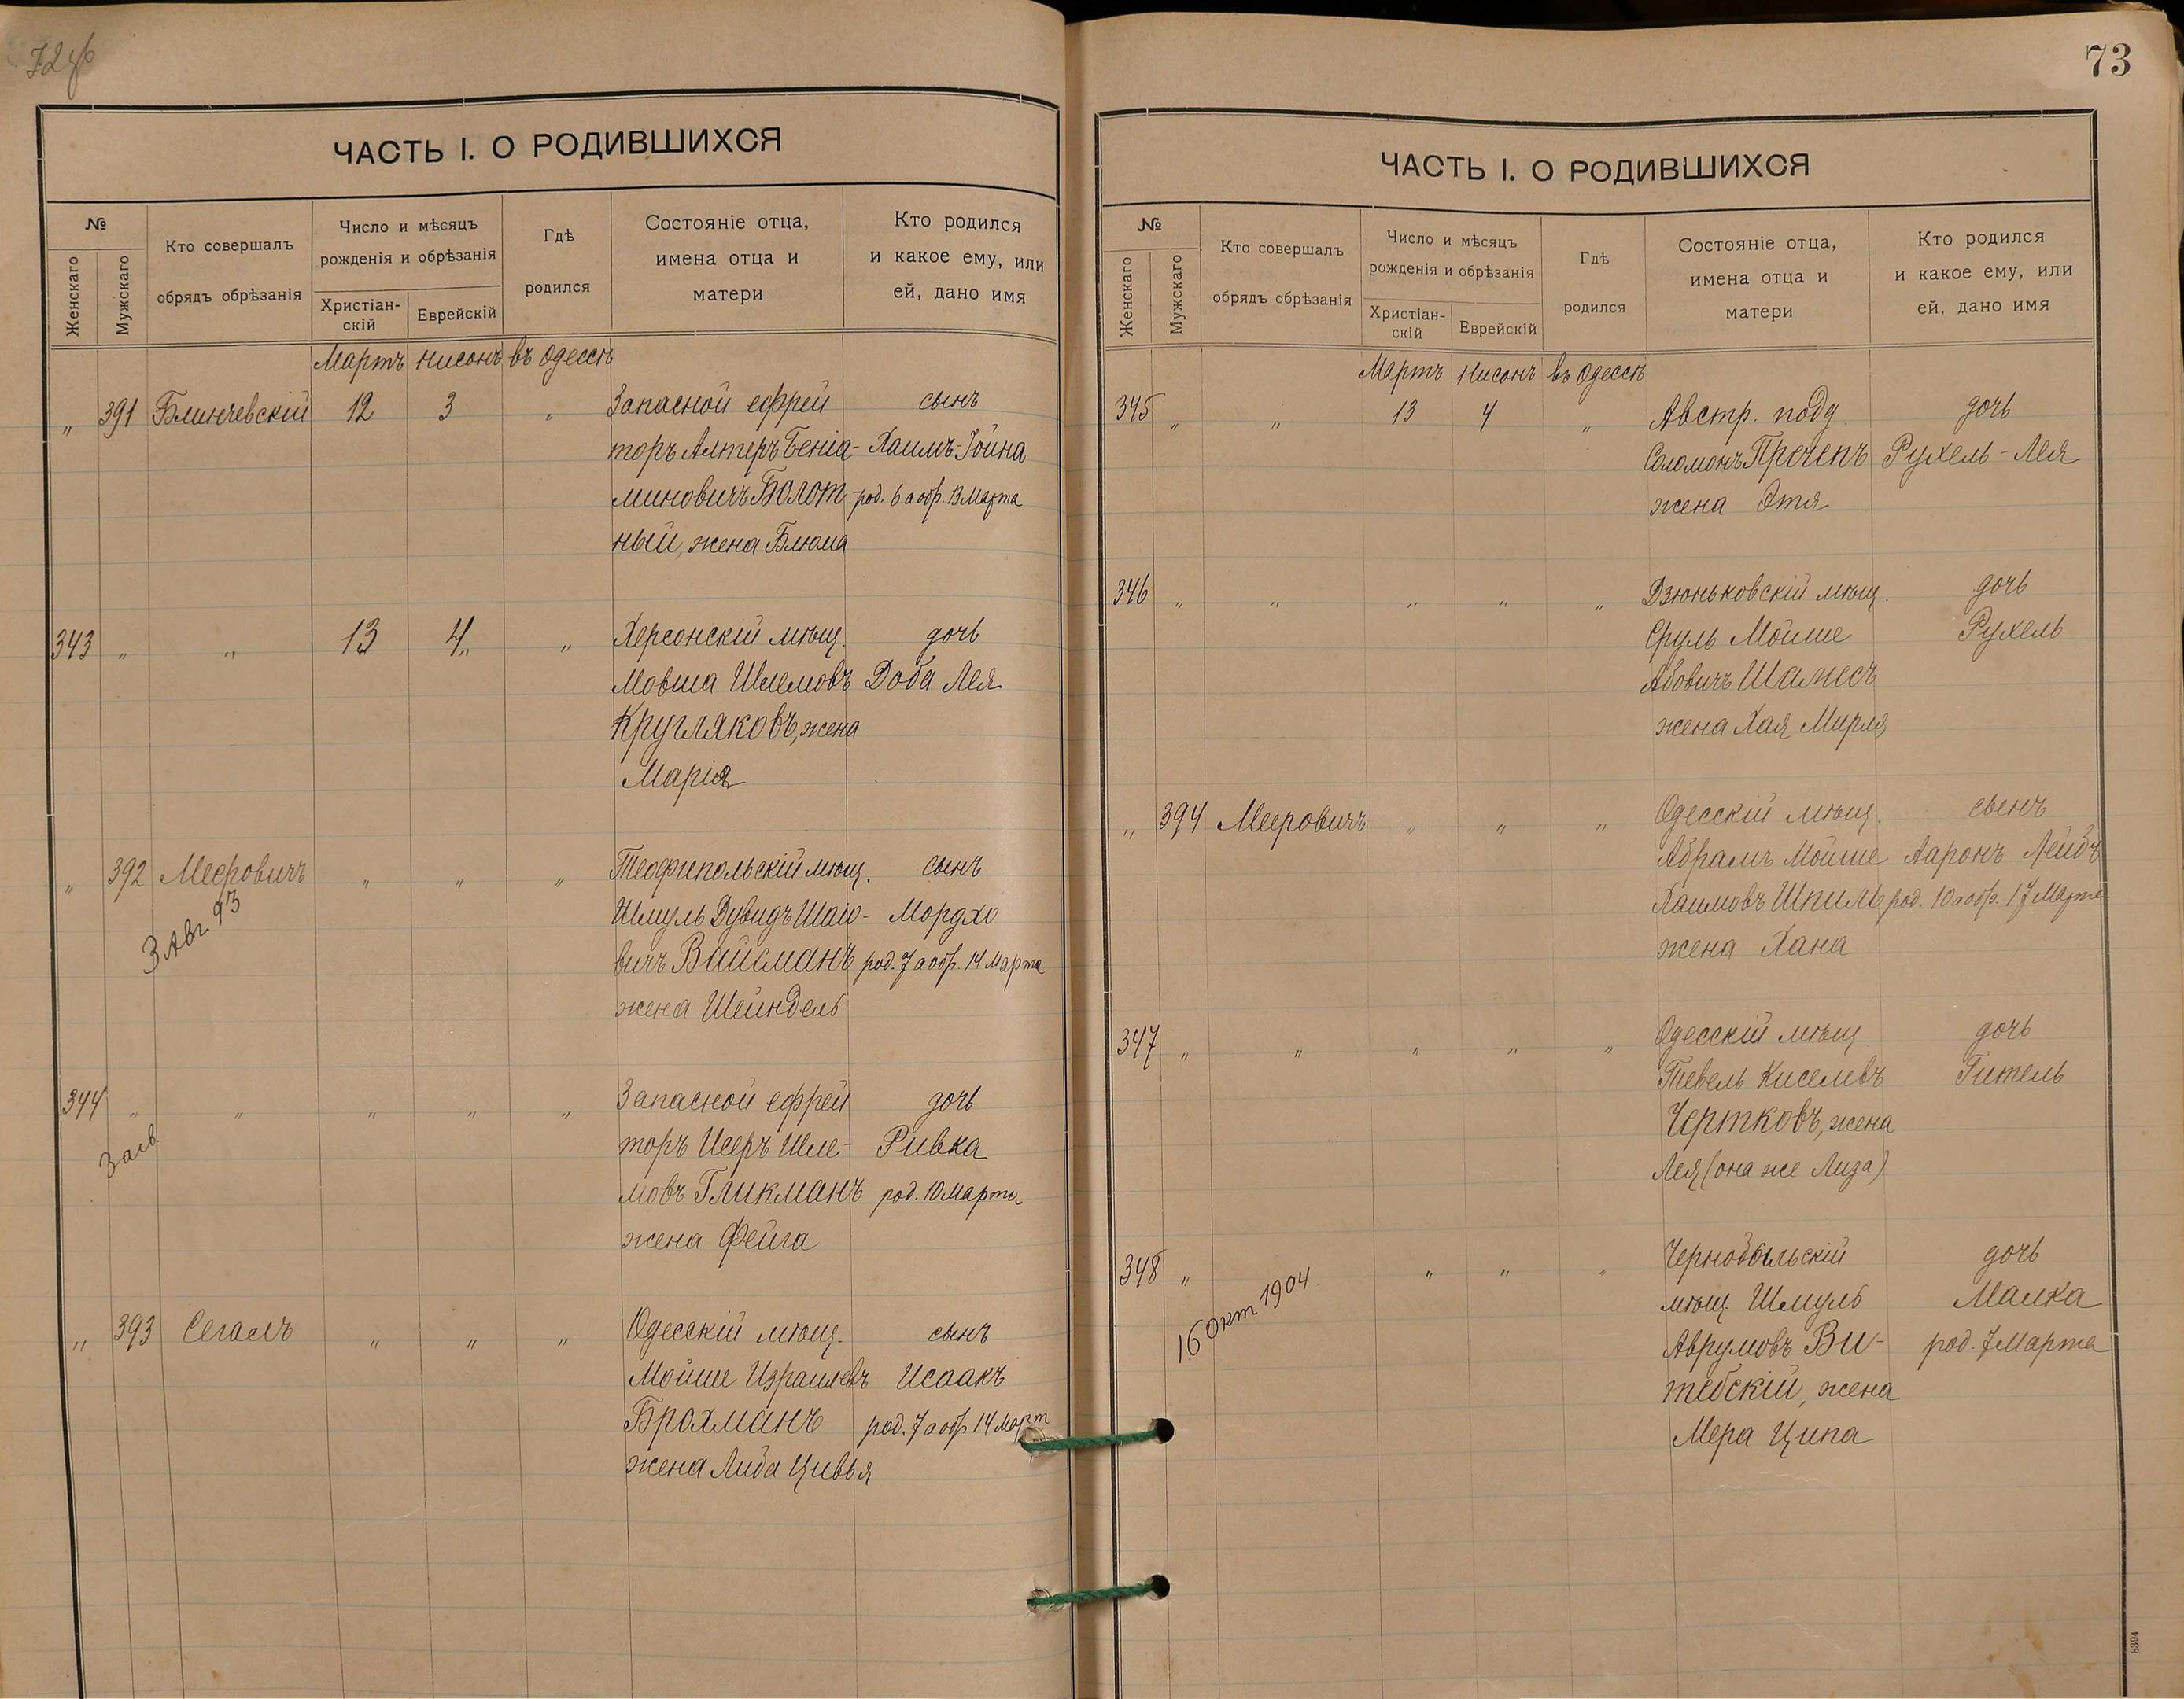 72об
ЧАСТЬ I. О РОДИВШИХСЯ
№
Женскаго
Мужскаго
Кто совершалъ
обрядъ обрѣзанія
Число и мѣсяцъ
рожденія и обрѣзанія
Христіан-
скій
Еврейскій
Гдѣ
родился
Состояніе отца,
имена отца и
матери
Кто родился
и какое ему, или
ей, дано имя
Мартъ Нисонъ въ Одессѣ
„ 391 Блинчевскій 12 3 „ Запасной ефрей сынъ
торъ Алтеръ Бенiа- Хаимъ-Іойна
миновичъ Болот- род. 6 а обр. 13 Марта
ный, жена Блюма
343 „ „ 13 4 „ Херсонскій мѣщ. дочь
Мовша Шлемовъ Доба Лея
Кругляковъ, жена
Марія
„ 392 Меєровичъ „ „ „ Теофипольскій мѣщ. сынъ
3 Авг. 93
Шмуль Дувидъ Шаіо- Мордхо
вичъ Вайсманъ род. 7 а обр. 14 Марта
жена Шейндель
344 „ „ „ „ „ Запасной ефрей дочь
торъ Исеръ Шле- Ривка
мовъ Гликманъ род. 10 Марта
жена Фейга
„ 393 Сегалъ „ „ „ Одесскій мѣщ. сынъ
Мойше Израилевъ Исаакъ
Брохманъ род. 7 а обр 14 Март
жена Либа Цивья
73
ЧАСТЬ I. О РОДИВШИХСЯ
№
Женскаго
Мужскаго
Кто совершалъ
обрядъ обрѣзанія
Число и мѣсяцъ
рожденія и обрѣзанія
Христіан-
скій
Еврейскій
Гдѣ
родился
Состояніе отца,
имена отца и
матери
Кто родился
и какое ему, или
ей, дано имя
Мартъ Нисонъ въ Одессѣ
345 „ „ 13 4 „ Австр. подд. дочь
Соломонъ Проченъ Рухель-Лея
жена Этя
346 „ „ „ „ „ Дзюньковскій мѣщ. дочь
Сруль Мойше Рухель
Абовичъ Шамесъ
жена Хая Мирля
„ 394 Мееровичъ „ „ „ Одесскій мѣщ. сынъ
Абрамъ Мойше Ааронъ Лейбъ
Хаимовъ Шпиль род. 10 а обр. 17 Марта
жена Хана
347 „ „ „ „ „ Одесскій мѣщ дочь
Тевель Киселевъ Гитель
Чертковъ, жена
Лея (она же Лиза)
348 „ „ „ „ Чернобыльскій дочь
16 окт 1904
мѣщ. Шмуль Малка
Аврумовъ Ви- род. 7 Марта
тебскій, жена
Мера Ципа
8394